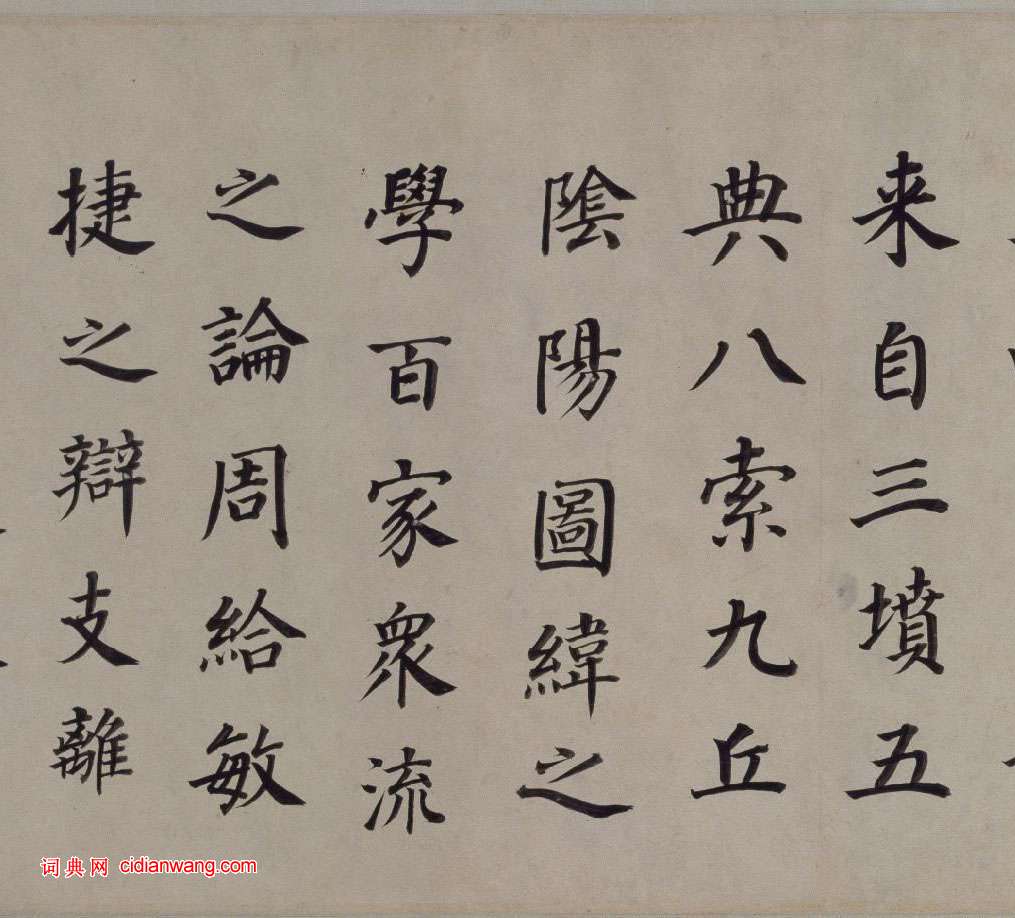 来自三墳五
典八索九丘
陰陽圖緯之
學百家衆流
之論周給敏
捷之辯支離
词典网 cidianwang.com